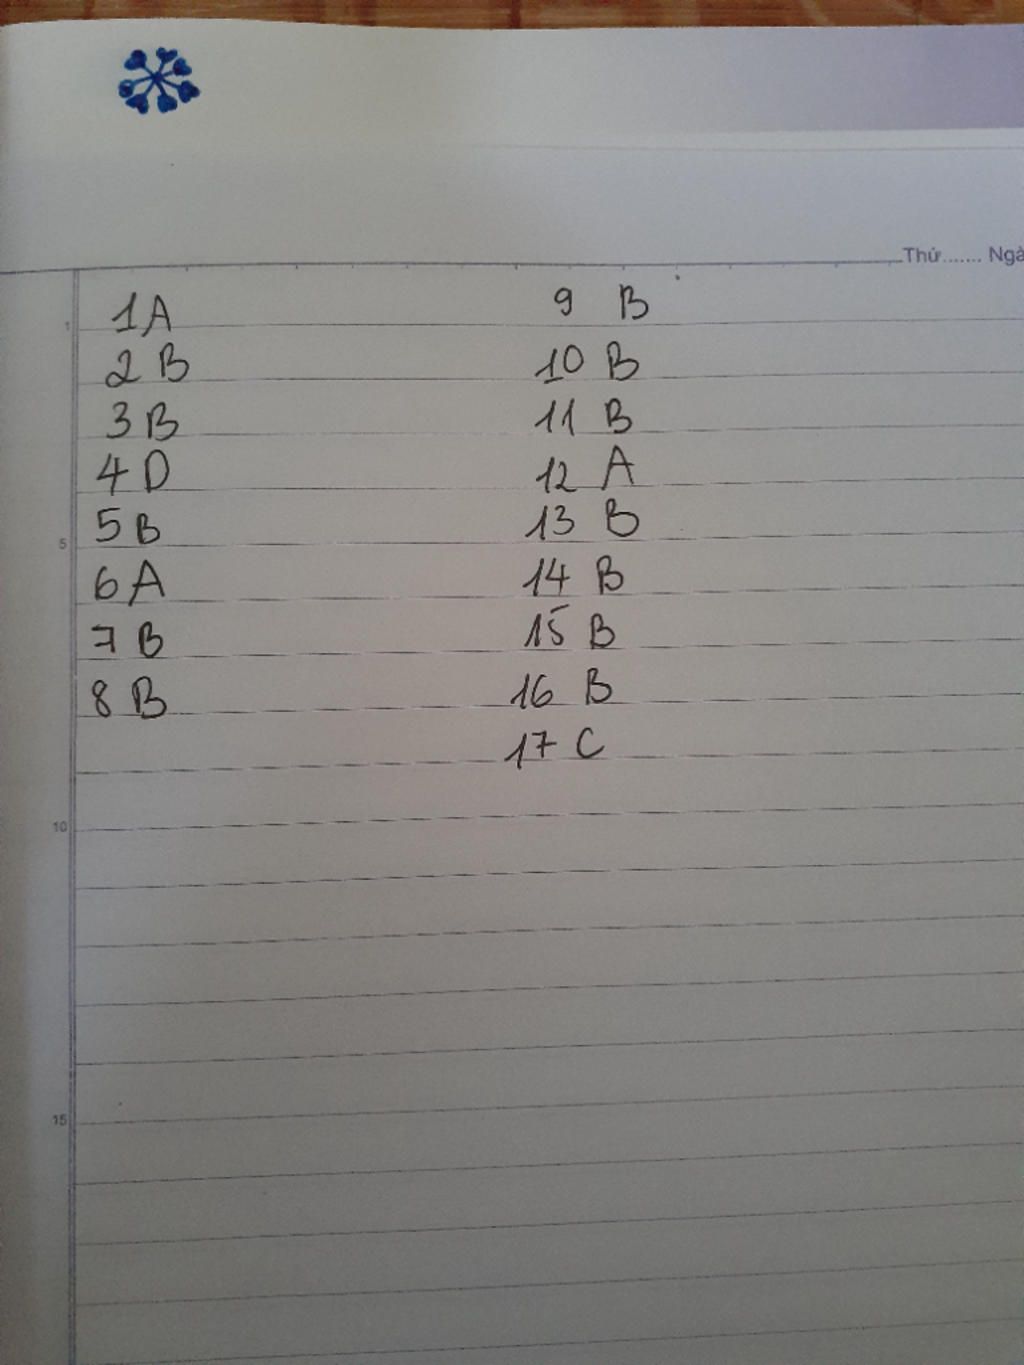 Thứ....... Ngà
1A
2 B
3 B
4 D
5 B
6 A
7 B
8 B
9 B
10 B
11 B
12 A
13 B
14 B
15 B
16 B
17 C
1
5
10
15